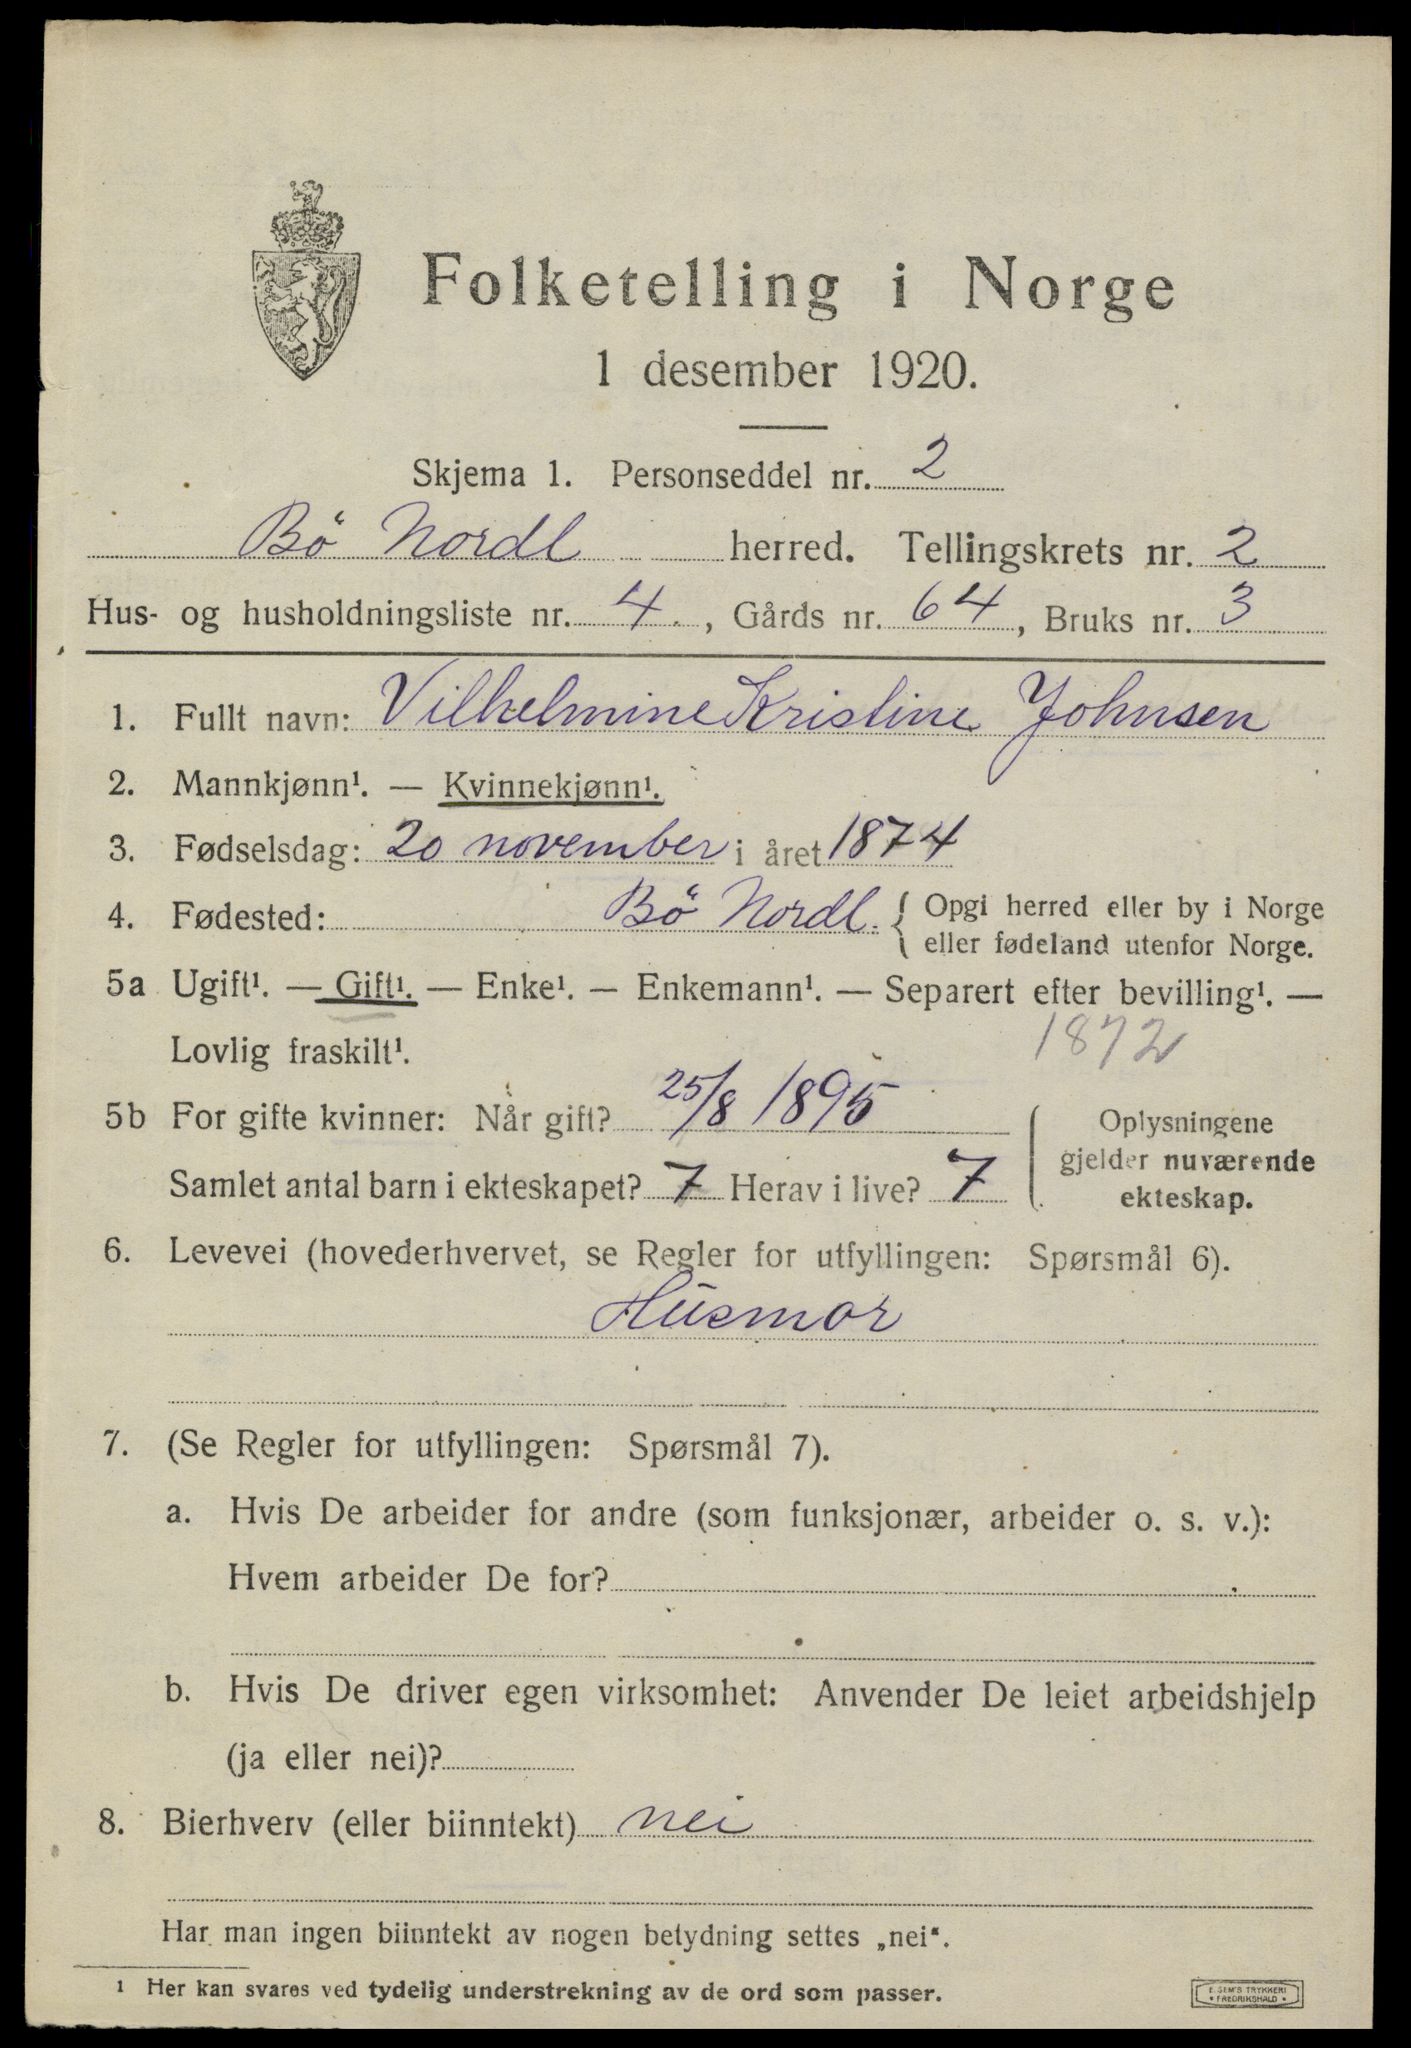 Folketelling i Norge
1 desember 1920.
Skjema 1. Personseddel nr. 2
Bö Nordl herred. Tellingskrets nr. 2
Hus- og husholdningsliste nr. 4, Gårds nr. 64, Bruks nr. 3
1. Fullt navn: Vilhelmine Kristine Johnsen
2. Mannkjønn¹. — Kvinnekjønn¹.
3. Fødselsdag: 20 november i året 1874
4. Fødested: Bö Nordl. { Opgi herred eller by i Norge
eller fødeland utenfor Norge.
5a Ugift¹. — Gift¹. — Enke¹. — Enkemann¹. — Separert efter bevilling¹. —
Lovlig fraskilt¹. 1872
5b For gifte kvinner: Når gift? 25/8 1895
Samlet antal barn i ekteskapet? 7 Herav i live? 7
Oplysningene
gjelder nuværende
ekteskap.
6. Levevei (hovederhvervet, se Regler for utfyllingen: Spørsmål 6).
Husmor
7. (Se Regler for utfyllingen: Spørsmål 7).
a. Hvis De arbeider for andre (som funksjonær, arbeider o. s. v.):
Hvem arbeider De for?
b. Hvis De driver egen virksomhet: Anvender De leiet arbeidshjelp
(ja eller nei)?
8. Bierhverv (eller biinntekt) nei
Har man ingen biinntekt av nogen betydning settes „nei“.
¹ Her kan svares ved tydelig understrekning av de ord som passer.
E. SEM'S TRYKKERI
• FREDRIKSHALD •